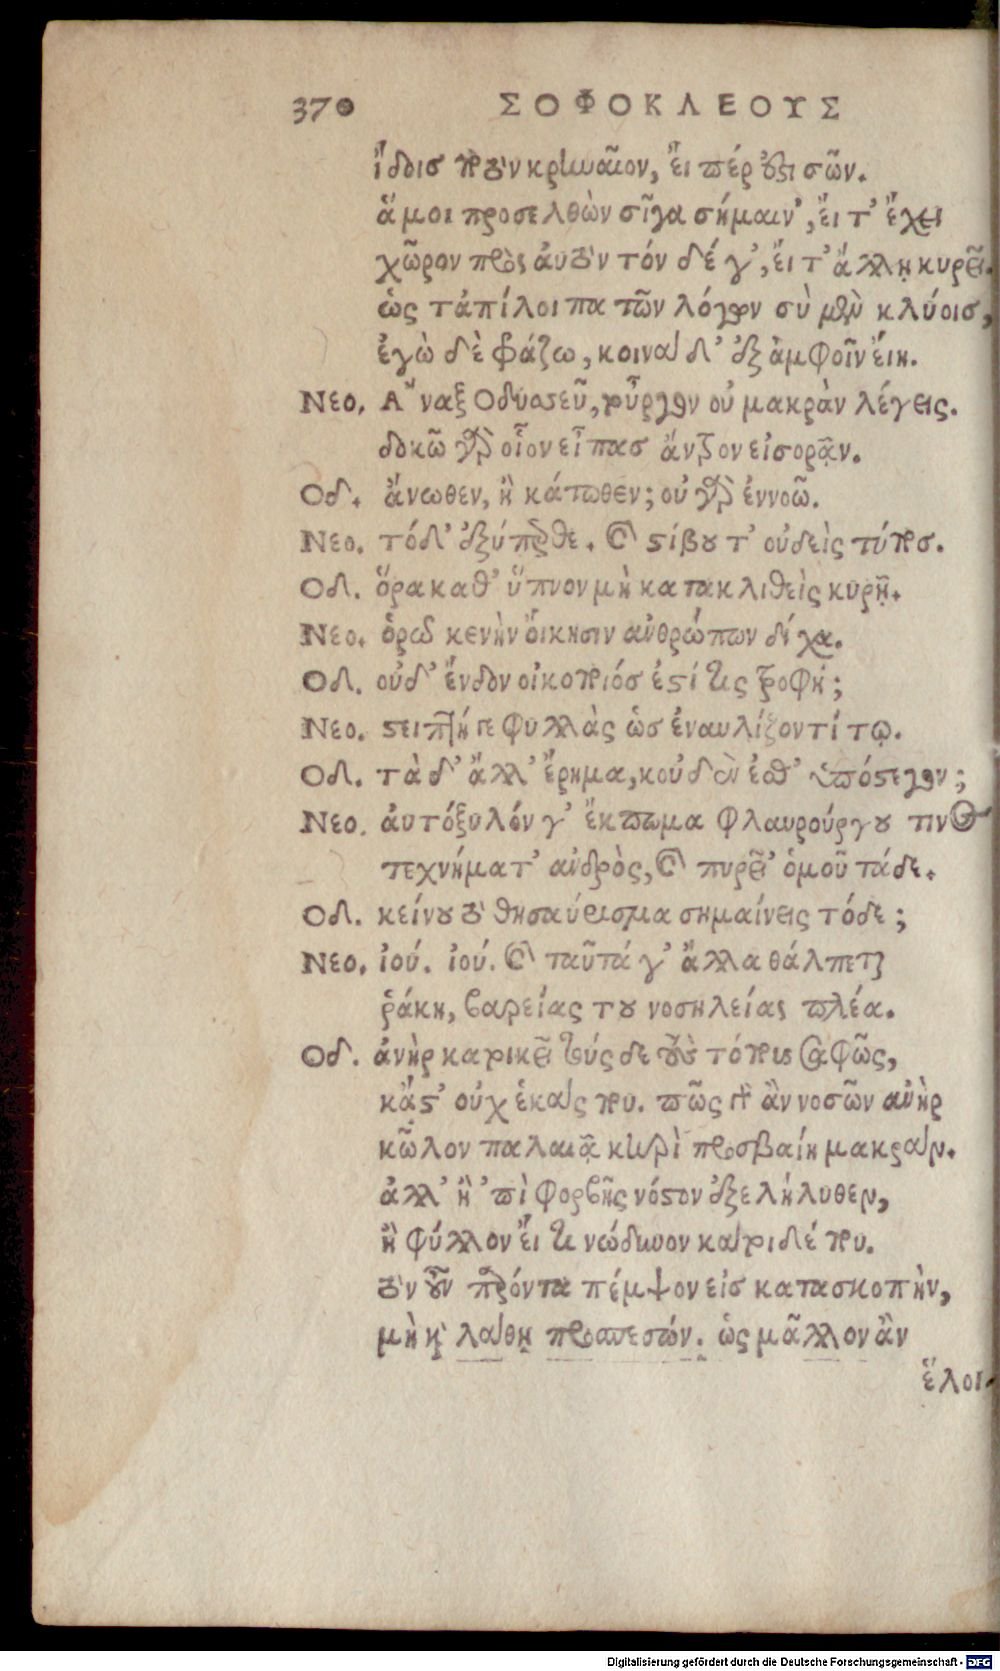 370 ΣΟΦΟΚΛΕΟΥΣ
ἴδοισ ποτὸν κρηναῖον, εἴ πέρ ὅστι σῶν.
ἅ μοι προσελθὼν σῖγα σήμαιν', εἴ τ' ἔχει
χῶρον πρὸς ἀυτὸν τόν δέ γ', εἴ τ' ἄλλῃ κυρεῖ.
ὡς τἀπίλοιπα τῶν λόγων σὺ μὲν κλύοισ,
ἐγὼ δὲ φράζω, κοιναὶ δ' ἐξ ἀμφοῖν εἴη.
Νεο. Α῎ναξ Οδυσσεῦ, τοὖργον οὐ μακρὰν λέγεις.
δοκῶ γὰρ οἷον εἶπασ ἄντρον εἰσορᾷν.
Οδ. ἄνωθεν, ἢ κάτωθεν; οὐ γὰρ ἐννοῶ.
Νεο. τόδ' ἐξύπερθε. καὶ στίβου τ' οὐδεὶς τύποσ.
Οδ. ὅρα καθ' ὕπνον μὴ κατακλιθεὶς κυρῇ.
Νεο. ὁρῶ κενὴν οἴκησιν ἀνθρώπων δίχα.
Οδ. οὐδ' ἔνδον οἰκοποιόσ ἐστί τις τροφή;
Νεο. στειπτήγε φυλλὰς ὡσ ἐναυλίζοντί τῳ.
Οδ. τὰ δ' ἄλλ' ἔρημα, κοὐδὲν ἐσθ' ὑπόστεγον;
Νεο. ἀυτόξυλόν γ' ἔκπωμα φλαυρούργου τινος
τεχνήματ' ἀνδρὸς, καὶ πυρεῖ' ὁμοῦ τάδε.
Οδ. κείνου τὸ θησαύρισμα σημαίνεις τόδε;
Νεο. ἰού. ἰού. καὶ ταῦτά γ' ἄλλα θάλπεται
ῥάκη, βαρείας του νοσηλείας πλέα.
Οδ. ἀνὴρ κατοικεῖ τούς δε τοὺς τόπους σαφῶς,
κἄστ' οὐχ ἑκάς που. πῶς γὰρ ἂν νοσῶν ἀνὴρ
κῶλον παλαιᾷ κηρὶ προσβαίη μακράν.
ἀλλ' ἢ 'πὶ φορβῆς νόστον ἐξελήλυθεν,
ἢ φύλλον εἴ τι νώδυνον κάτοιδέ που.
τὸν οὖν παρόντα πέμψον εἰσ κατασκοπὴν,
μὴ καὶ λάθῃ προσπεσών. ὡς μᾶλλον ἂν
ἕλοι-
Digitalisierung gefördert durch die Deutsche Forschungsgemeinschaft - DFG